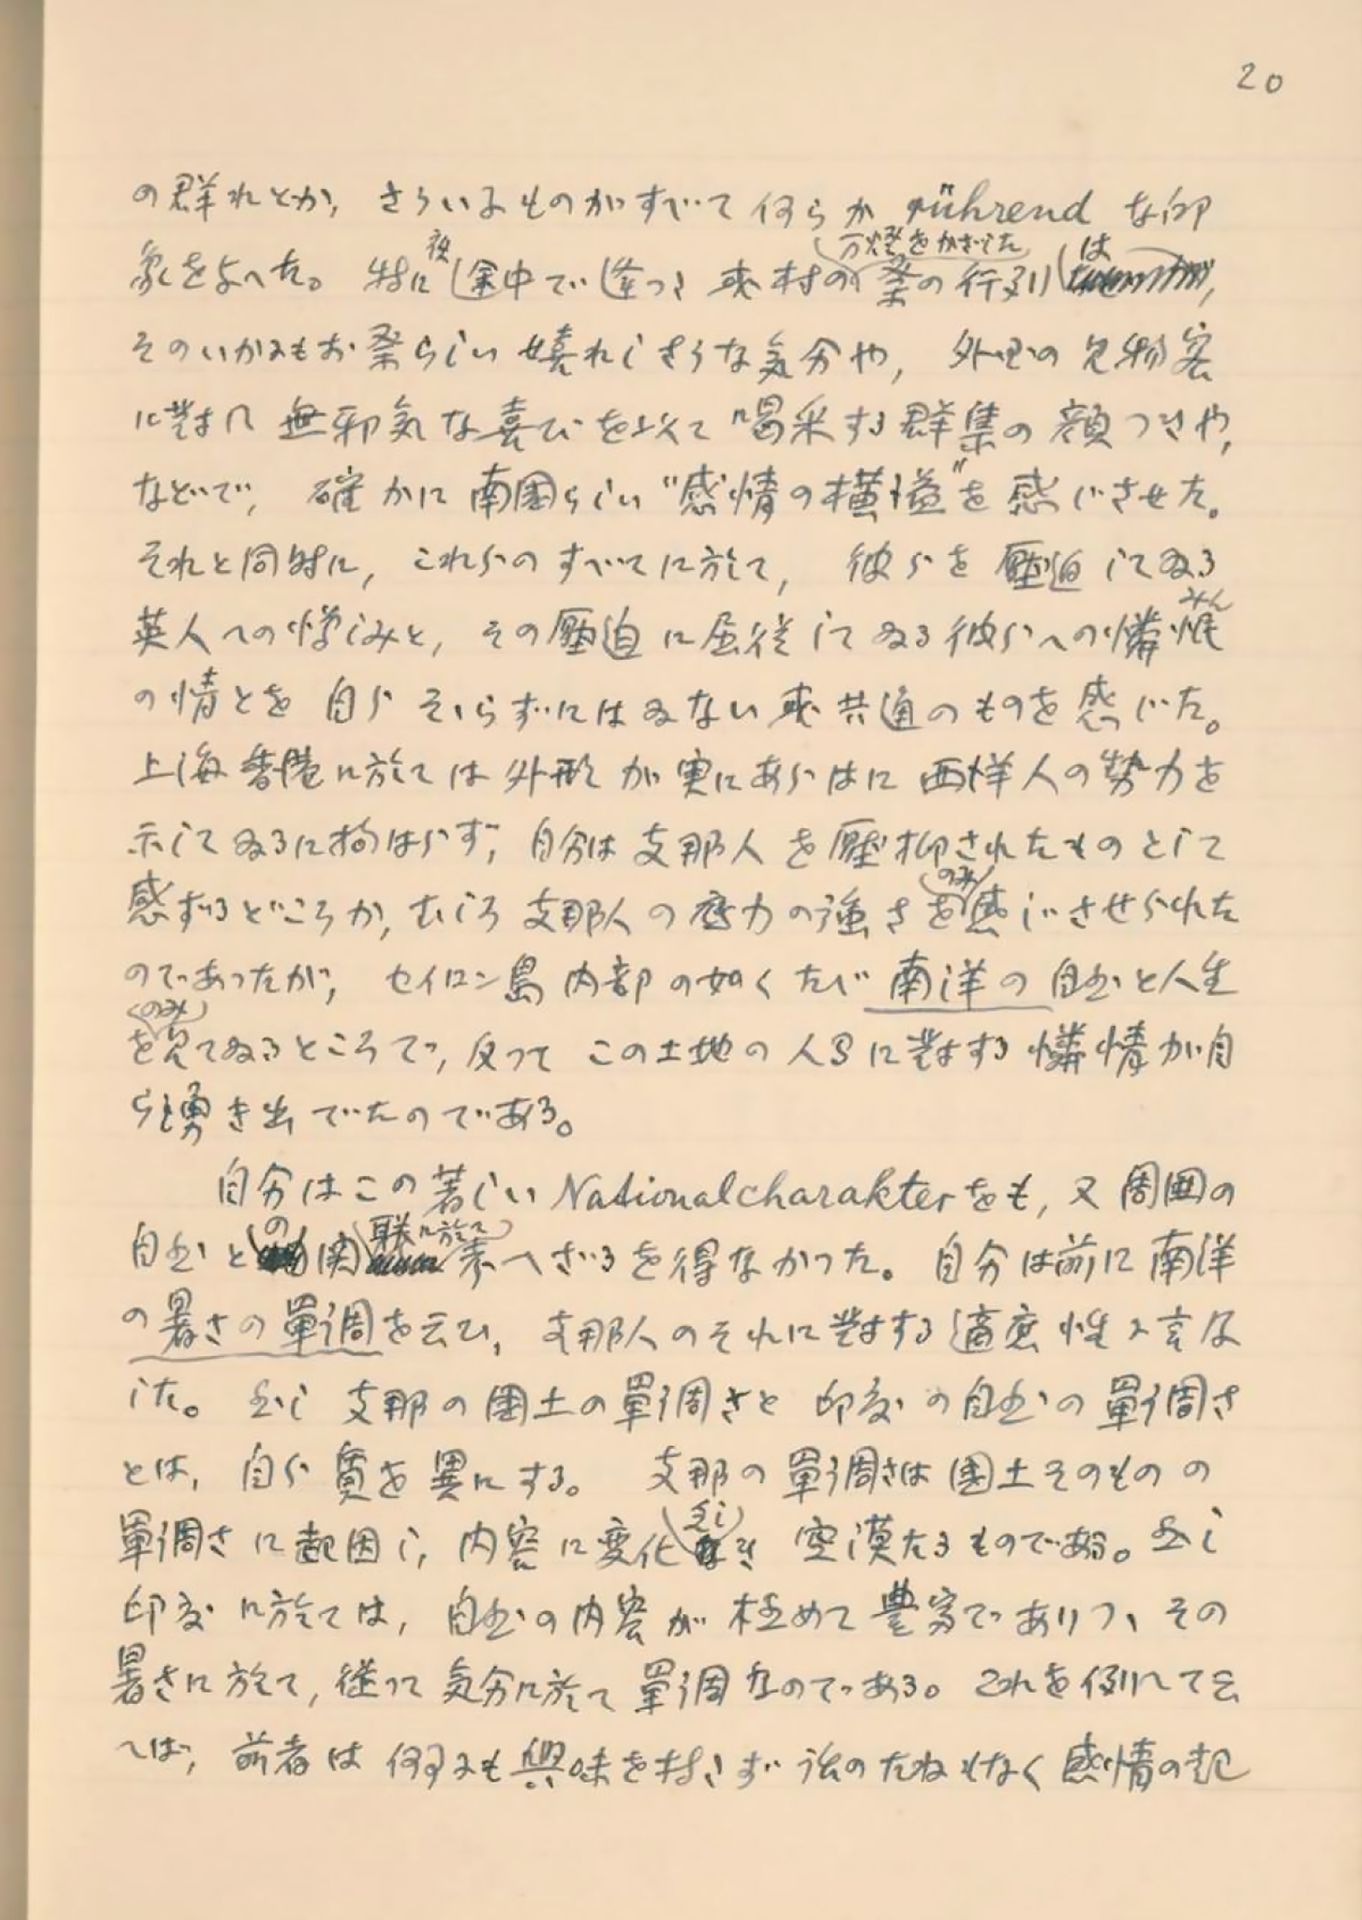 20
の群れとか, さういふものがすべて何らか rührend な印
象を与へた。特に夜途中で逢つた 村の万燈をかざした祭の行列は,
そのいかにもお祭らしい嬉れしさうな気分や, 外国の見物客
に対し無邪気な喜びを以て喝采する群集の顔つきや,
などで, 確かに南国らしい“感情の横溢”を感じさせた。
それと同時に, これらのすべてに於て, 彼らを壓迫してゐる
英人への憎しみと, その壓迫に屈従してゐる彼らへの憐愍みん
の情とを自らそゝらずにはゐない 共通のものを感じた。
上海香港に於ては外形が実にあらはに西洋人の勢力を
示してゐるに拘はらず, 自分は支那人を壓抑されたものとして
感ずるどころか, むしろ支那人の 力の強さをのみ感じさせられた
のであつたが, セイロン島内部の如くたゞ南洋の自然と人生
をのみ見てゐるところで, 反つてこの土地の人 に対する憐情が自
ら湧き出でたのである。
自分はこの著しい Nationalcharakter をも, 又周囲の
自然との関聯に於て考へざるを得なかつた。自分は前に南洋
の暑さの單調を云ひ, 支那人のそれに対する適應性に言及
した。然し支那の國土の單調さと印度の自然の單調さ
とは, 自ら質を異にする。支那の單調さは國土そのものの
單調さに起因し, 内容に変化乏しき空漠たるものである。然し
印度に於ては, 自然の内容が極めて豊富でありつゝその
暑さに於て, 従つて気分に於て單調なのである。これを例へて云
へば, 前者は何らにも興味を持さず 話のたねもなく感情の起